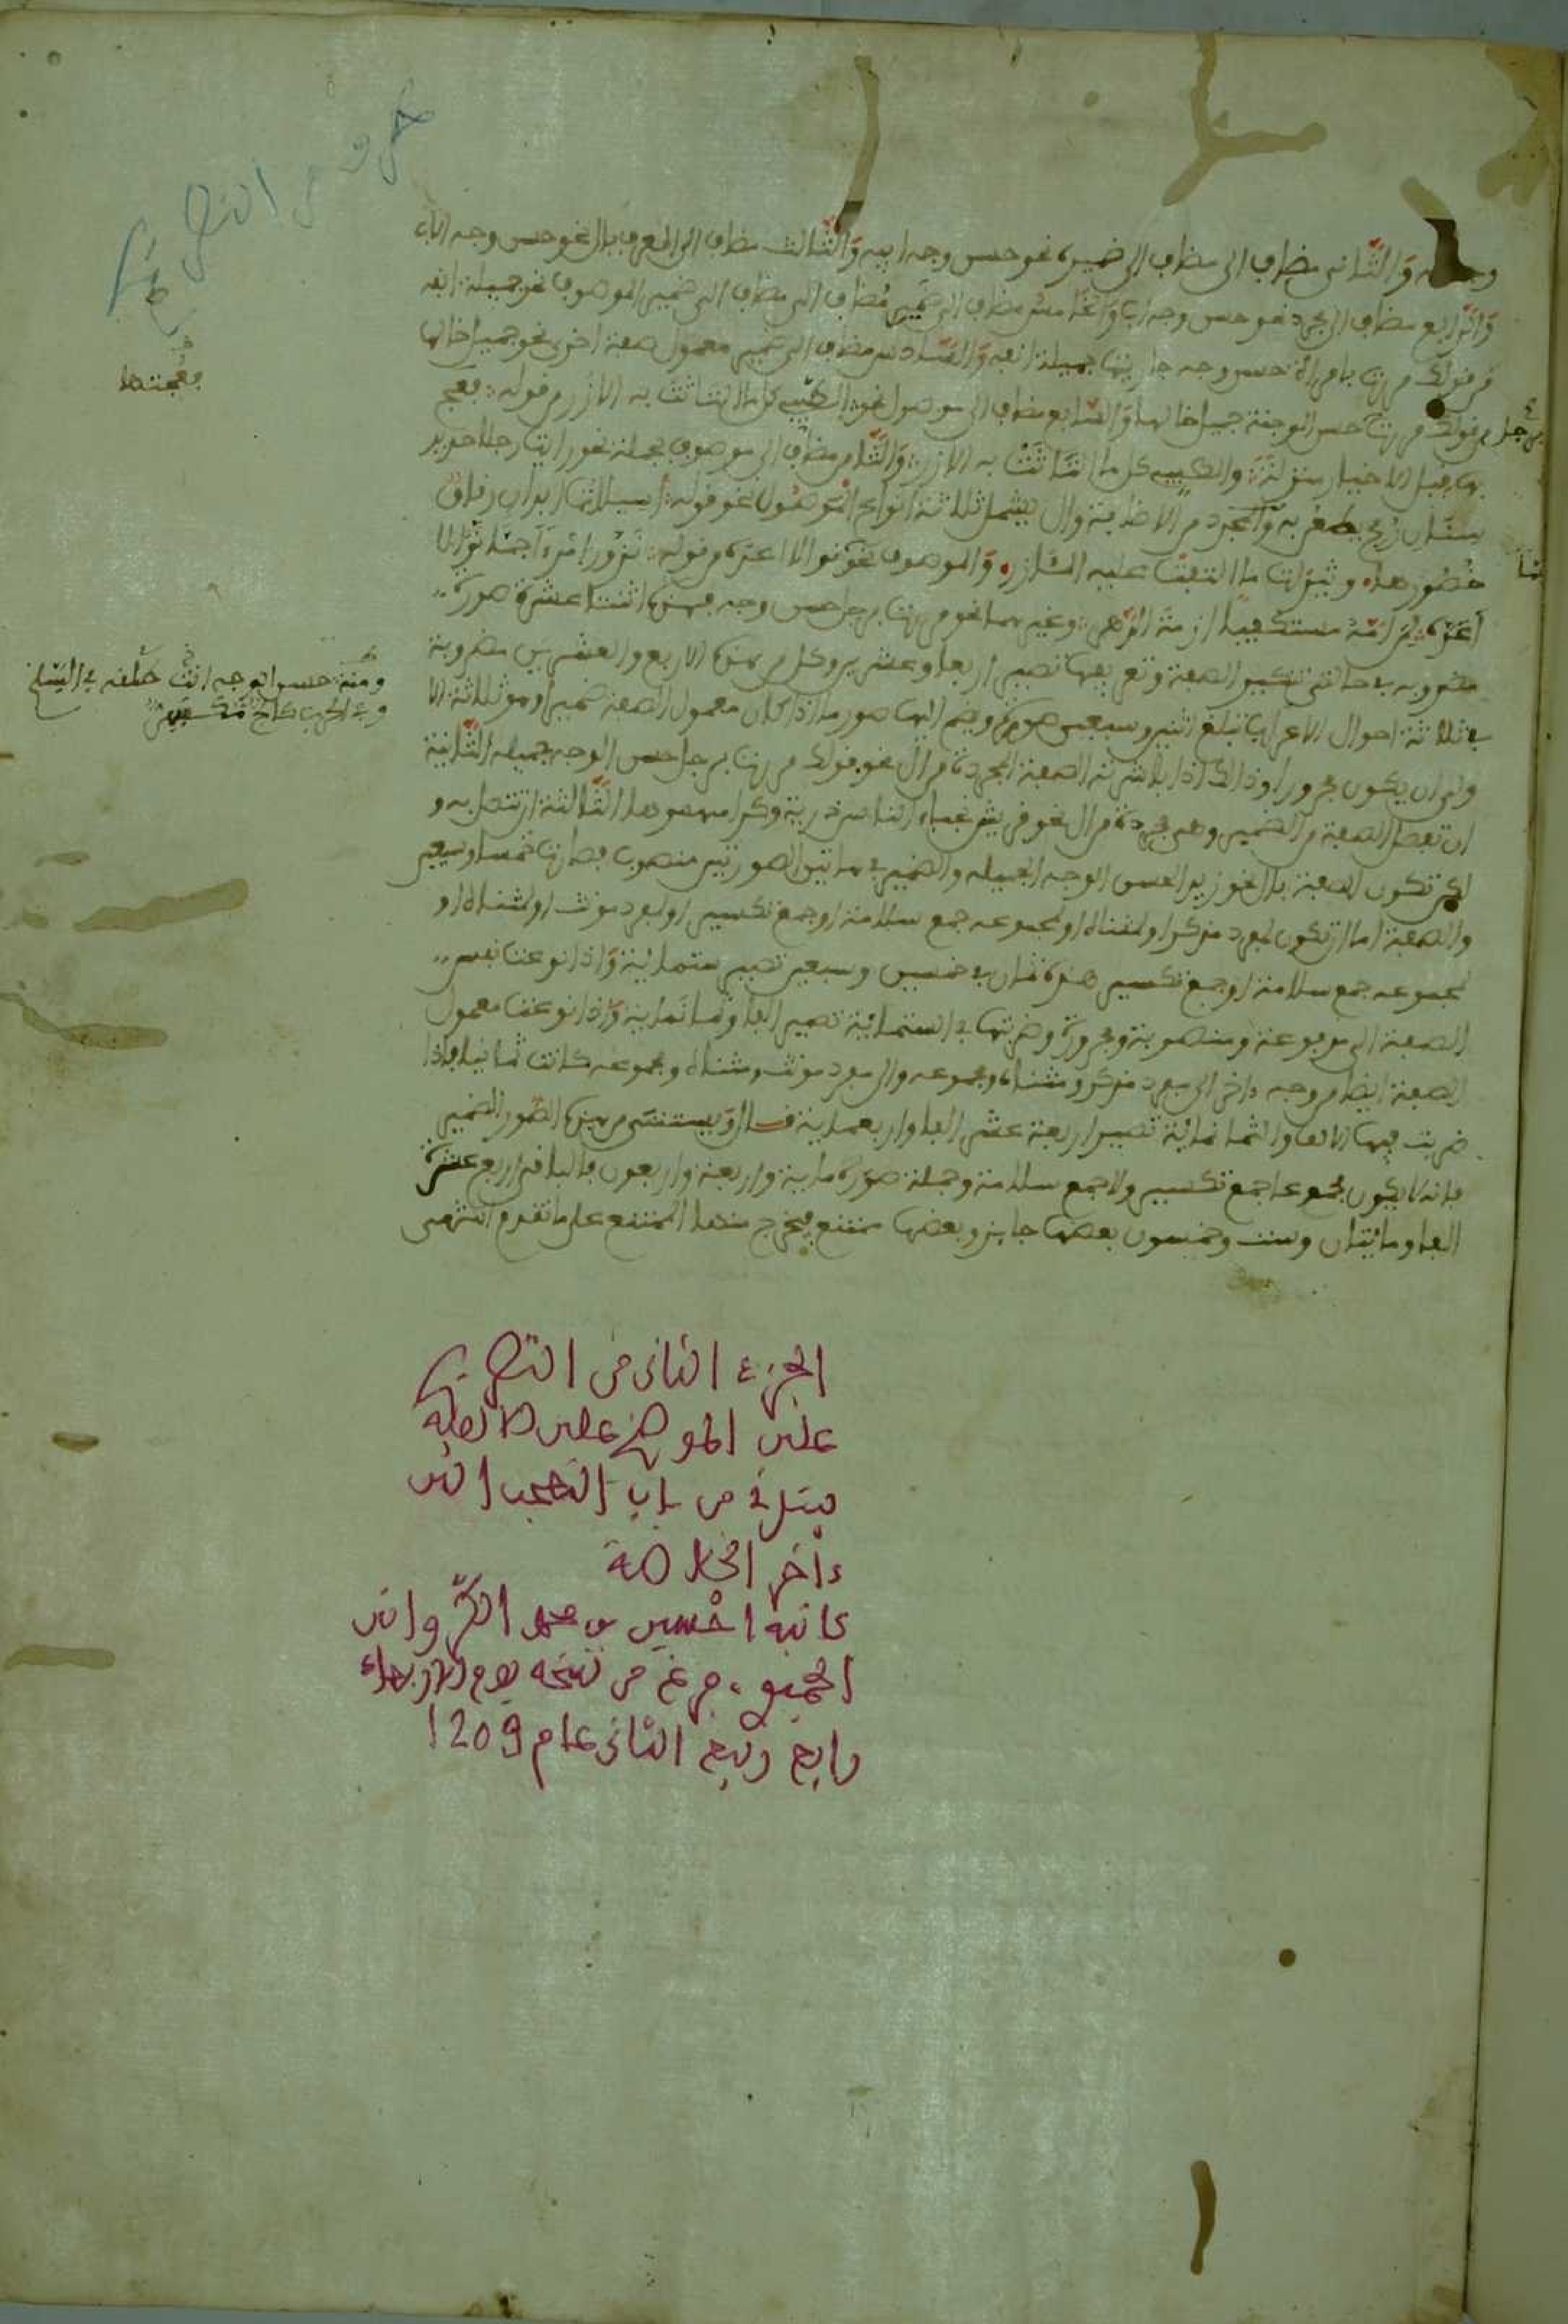 وجهه والثاني مضاف الى مضاف الى ضميره نحو حسن وجه ابيه والثالث مضاف الى المعرف بال نحو حسن وجه الاب
والرابع مضاف الى مجرد نحو حسن وجه اب والخامس مضاف الى ضمير مضاف الى مضاف الى ضمير الموصوف نحو جميلة انفه
من قولك مررت بامراة حسن وجه جاريتها جميلة انفه والسادس مضاف الى ضمير معمول صفة اخرى نحو جميل خالها
من قولك مررت برجل حسن الوجنة جميل خالها والسابع مضاف الى موصول نحو الطيبي كل ما التاثت به الازر من قوله فعج
بها قبل الاخيار منزلة والطيبي كل ما التاثت به الازر والثامن مضاف الى موصوف بجملة نحو رايت رجلا حديد
سنان رمح يطعن به والمجرد من الاضافة وال يشمل ثلاثة انواع الموصول نحو قوله اسيلات ابدان رقاق
خصورها وثيرات ما التفت عليه المئازر والموصوف نحو نوالا اعده من قوله تزور امرءا جما نوالا
اعده لمن امه مستكفيا ازمة الدهر وغيرهما نحو مررت برجل حسن وجه فهذه اثنتا عشرة صورة
مضروبة في حالتي تنكير الصفة وتعريفها تصير اربعا وعشرين وكل من هذه الاربع والعشرين مضروبة
في ثلاثة احوال الاعراب تبلغ اثنين وسبعين صورة ويضم اليها صور ما اذا كان معمول الصفة ضميرا وهو ثلاثة الا
ولى ان يكون مجرورا وذالك اذا باشرته الصفة المجردة من ال نحو قولك مررت برجل حسن الوجه جميله الثانية
ان تفصل الصفة من الضمير وهي مجردة من ال نحو قريش نجباء الناس ذرية وكرامهموها الثالثة ان تتصل به و
لكن تكون الصفة بال نحو زيد الحسن الوجه الجميله والضمير في هاتين الصورتين منصوب فصارت خمسا وسبعين
والصفة اما ان تكون لمفرد مذكر او لمثناه او لمجموعه جمع سلامة او جمع تكسير او لمفرد مونث او لمثناه او
لمجموعه جمع سلامة او جمع تكسير هذه ثمان في خمس وسبعين تصير ستمائة واذا نوعت نفس
الصفة الى مرفوعة ومنصوبة ومجرورة وضربتها في الستمائة تصير الفا وثمانمائة واذا نوعت معمول
الصفة ايضا من وجه ءاخر الى مفرد مذكر ومثناه ومجموعه والى مفرد مونث ومثناه ومجموعه كانت ثمانيا فاذا
ضربت فيها الالف والثمانمائة تصير اربعة عشر الفا واربعمائة قال ويستثنى من هذه الصور الضمير
فانه لا يكون مجموعا جمع تكسير ولا جمع سلامة وجملة صوره مائة واربعة واربعون فالباقي اربع عشرة
الفا ومائتان وست وخمسون بعضها جايز وبعضها ممتنع فيخرج منها الممتنع على ما تقدم انتهى
فعجتها
ومنه حسن الوجه انت في السلم
وفي الحرب كالح مكفهر
الجزء الثانى من التصريح
على الموضح على الالفية
يبتدئ من باب التعجب الى
ءاخر الخلاصة
كاتبه احسين بن محمد
فرغ من نسخه يوم الاربعاء
رابع ربيع الثانى عام 1209